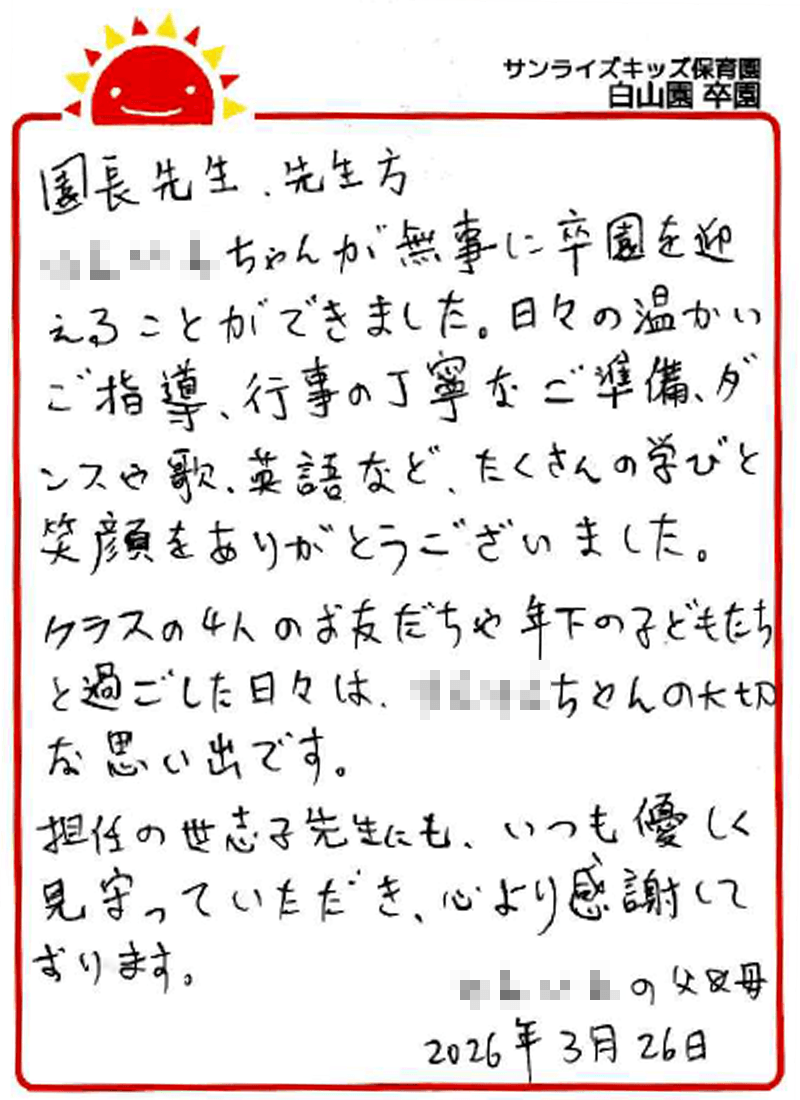 サンライズキッズ保育園
白山園 卒園
園長先生、先生方
ちゃんが無事に卒園を迎
えることができました。日々の温かい
ご指導、行事の丁寧なご準備、ダ
ンスや歌、英語など、たくさんの学びと
笑顔をありがとうございました。
クラスの4人のお友だちや年下の子どもたち
と過ごした日々は、ちゃんの大切
な思い出です。
担任の世志子先生にも、いつも優しく
見守っていただき、心より感謝して
おります。
の父母
2026年3月26日